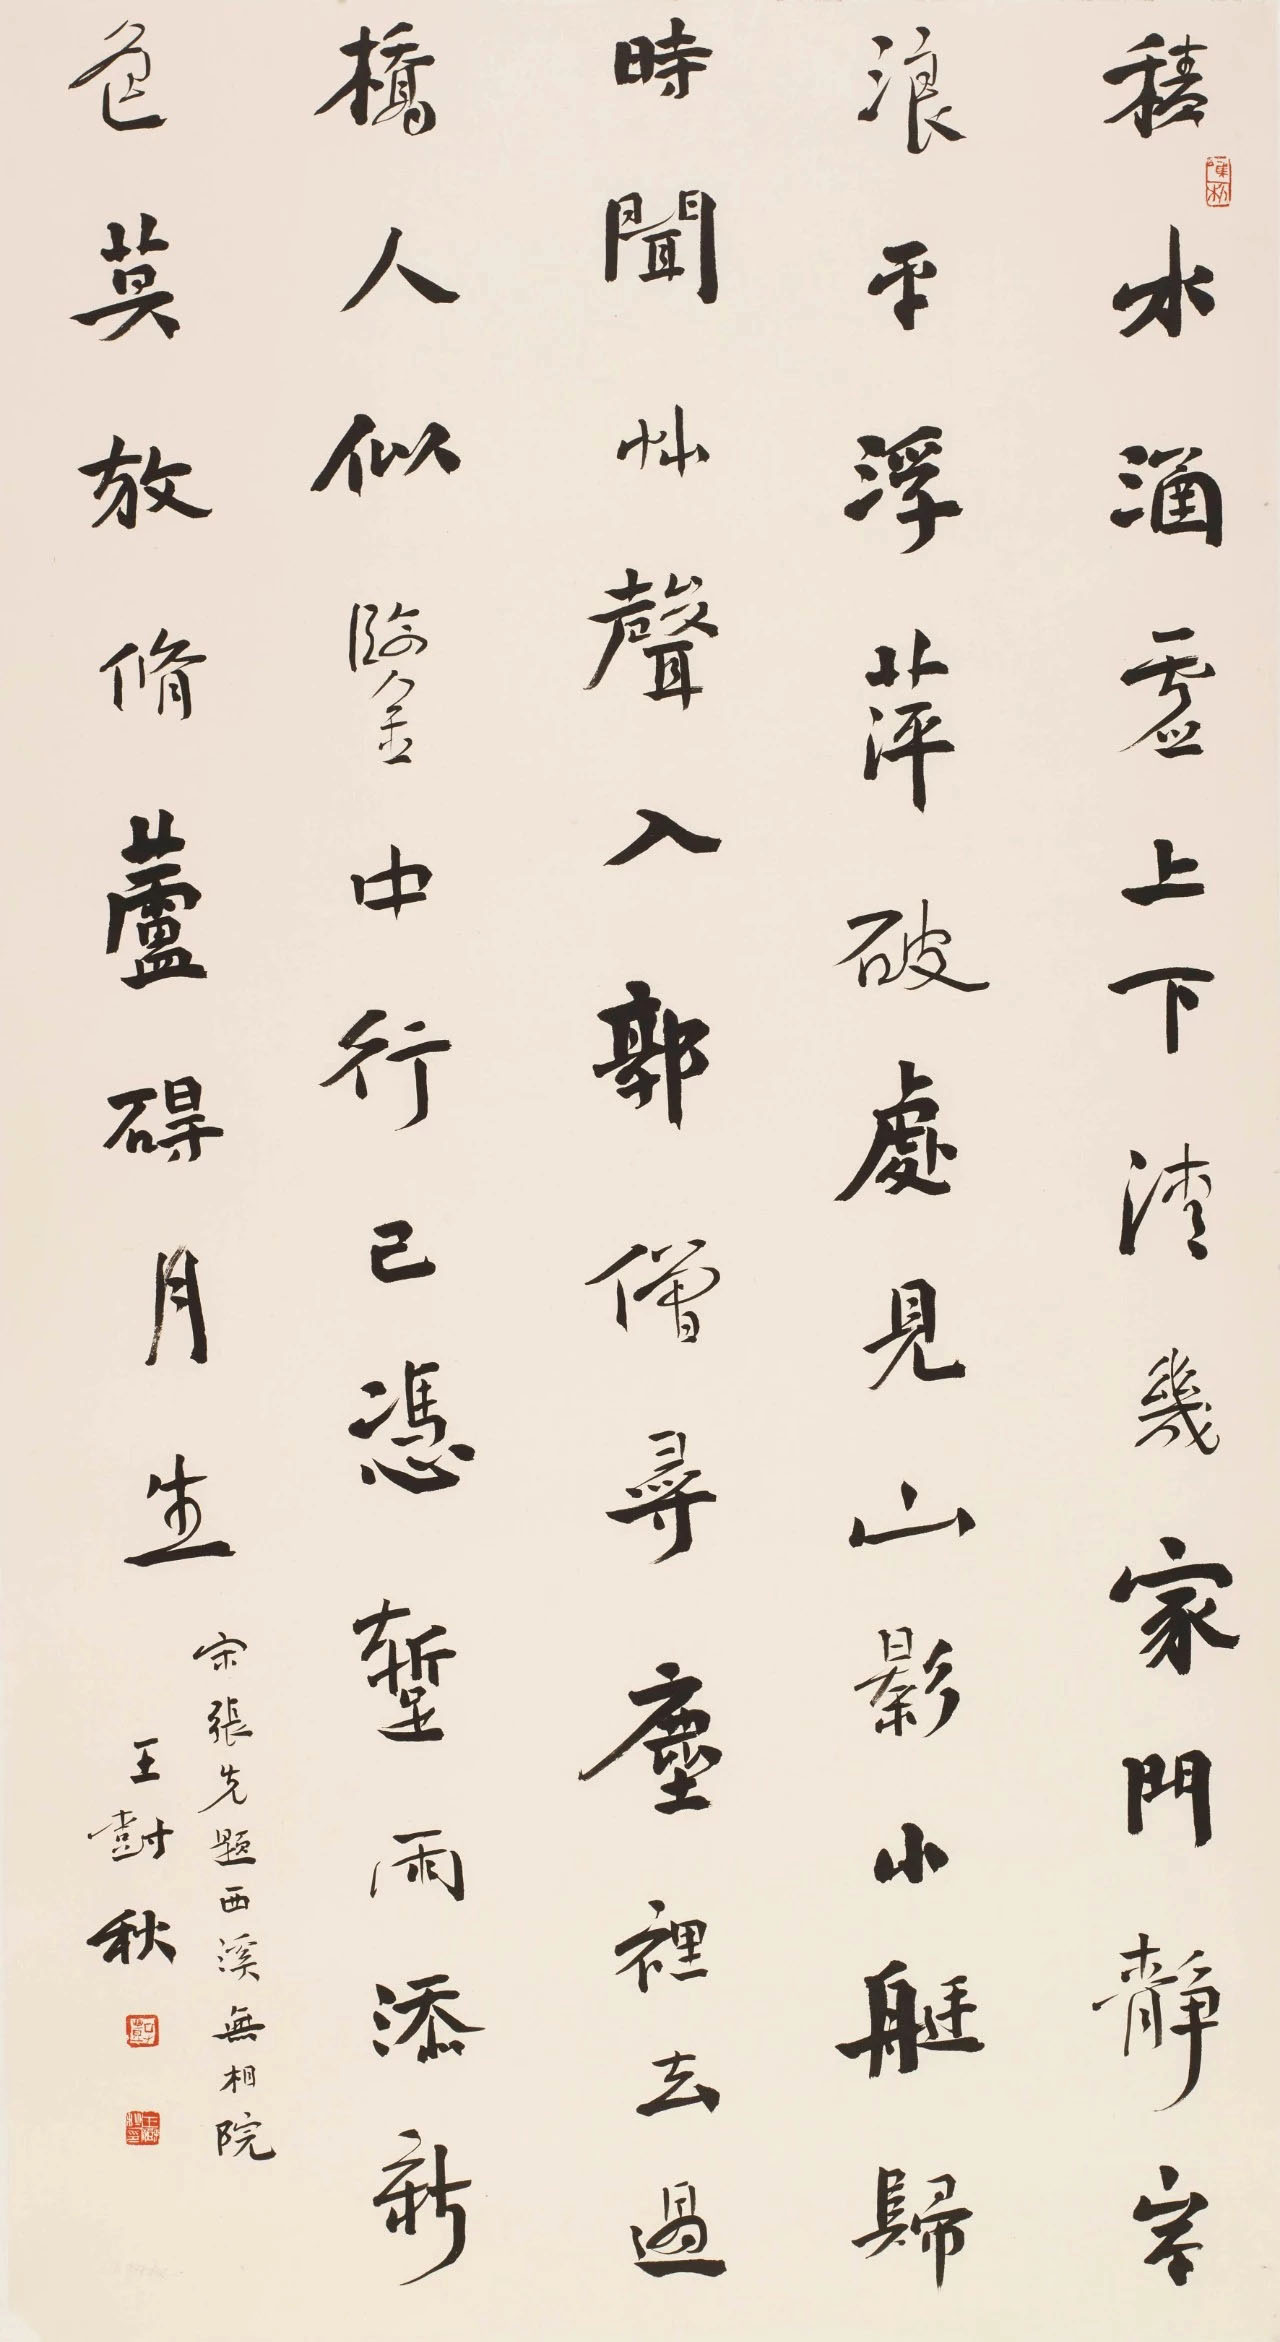 積水涵虛上下清幾家門靜岸
浪平浮萍破處見山影小艇歸
時聞艸聲入郭僧尋塵裡去過
橋人似鑒中行已憑蹔雨添新
色莫放脩蘆碍月生
宋張先題西溪無相院
王尌秋